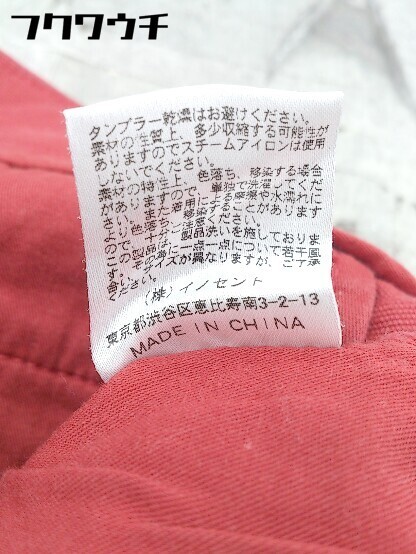 フクワウチ
タンブラー乾燥はお避けください。
素材の性質上、多少収縮する可能性が
ありますのでスチームアイロンは使用
しないでください。
素材の特性上、色落ち、移染する場合
がありますので、単独で洗濯してくだ
さい。また着用による摩擦や水濡れに
より、色落ち、移染することがあります
ので、十分ご注意ください。
この製品は、製品洗いを施しておりま
す。その為に一点一点について若干風
合い、サイズが異なりますが、ご了承
ください。
(株)イノセント
東京都渋谷区恵比寿南3-2-13
MADE IN CHINA